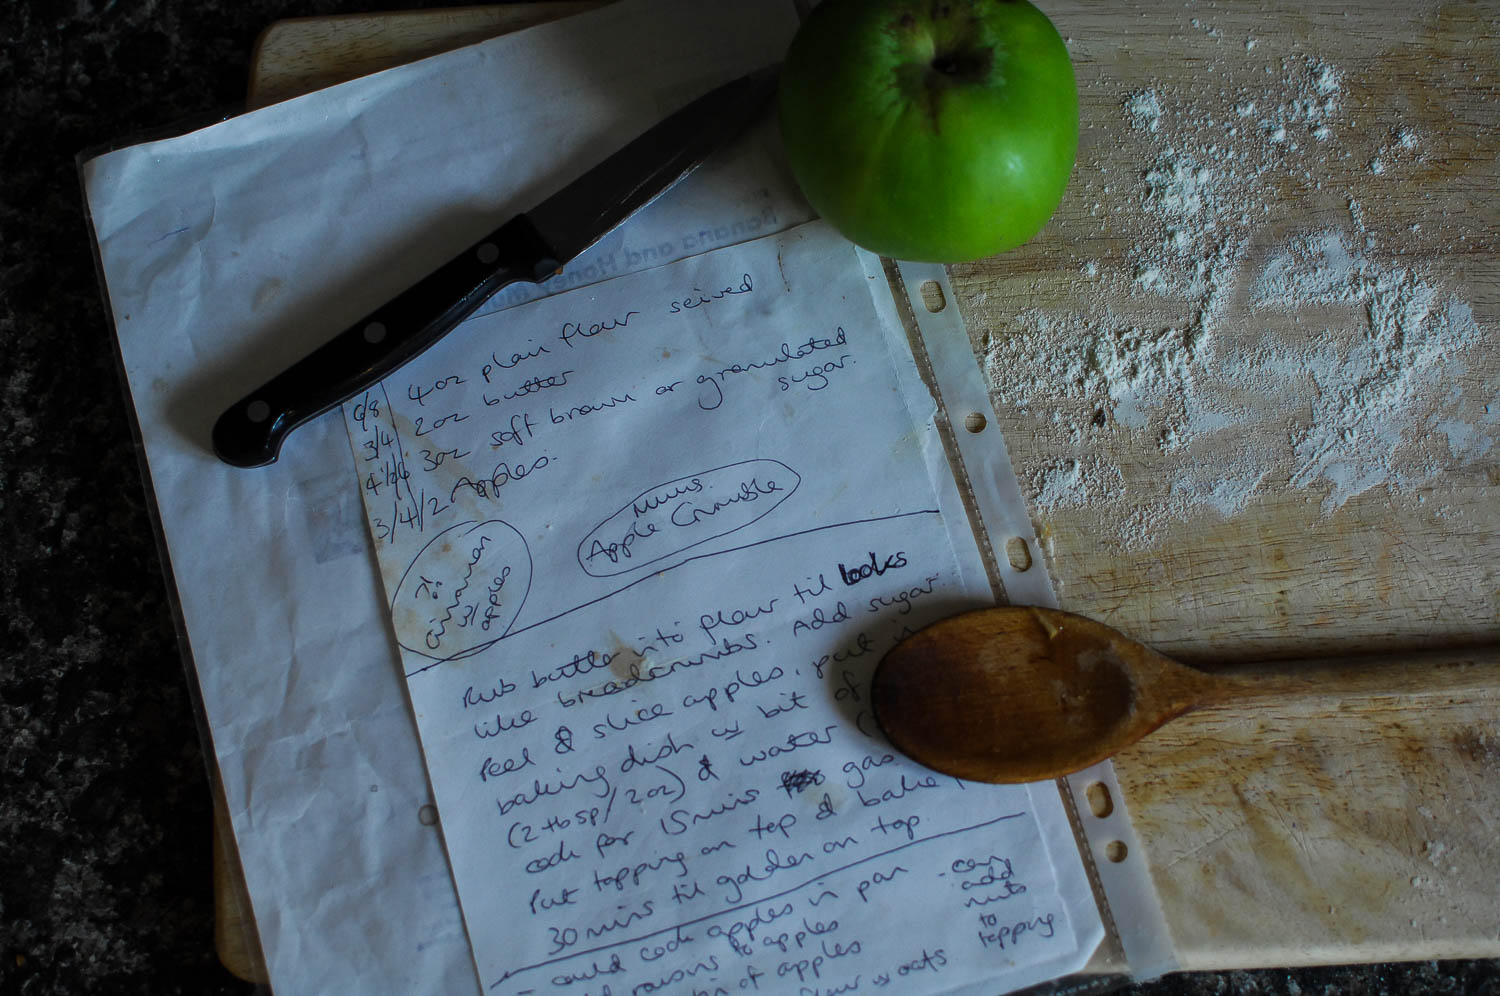 Banana and Honey
6/8 4oz plain flour seived
3/4 2oz butter
4½/6 3oz soft brown or granulated
sugar.
3/4/2 Apples.
Mums
Apple Crumble
½
cinnamon
w/
apples
Rub butter into flour til looks
like breadcrumbs. Add sugar.
Peel & slice apples, put in
baking dish w bit of
(2 tbsp/2oz) & water
cook for 15 mins gas
Put topping on top & bake
30 mins til golden on top.
- could cook apples in pan
raisons to apples
of apples
w oats
- can
add
nuts
to
topping